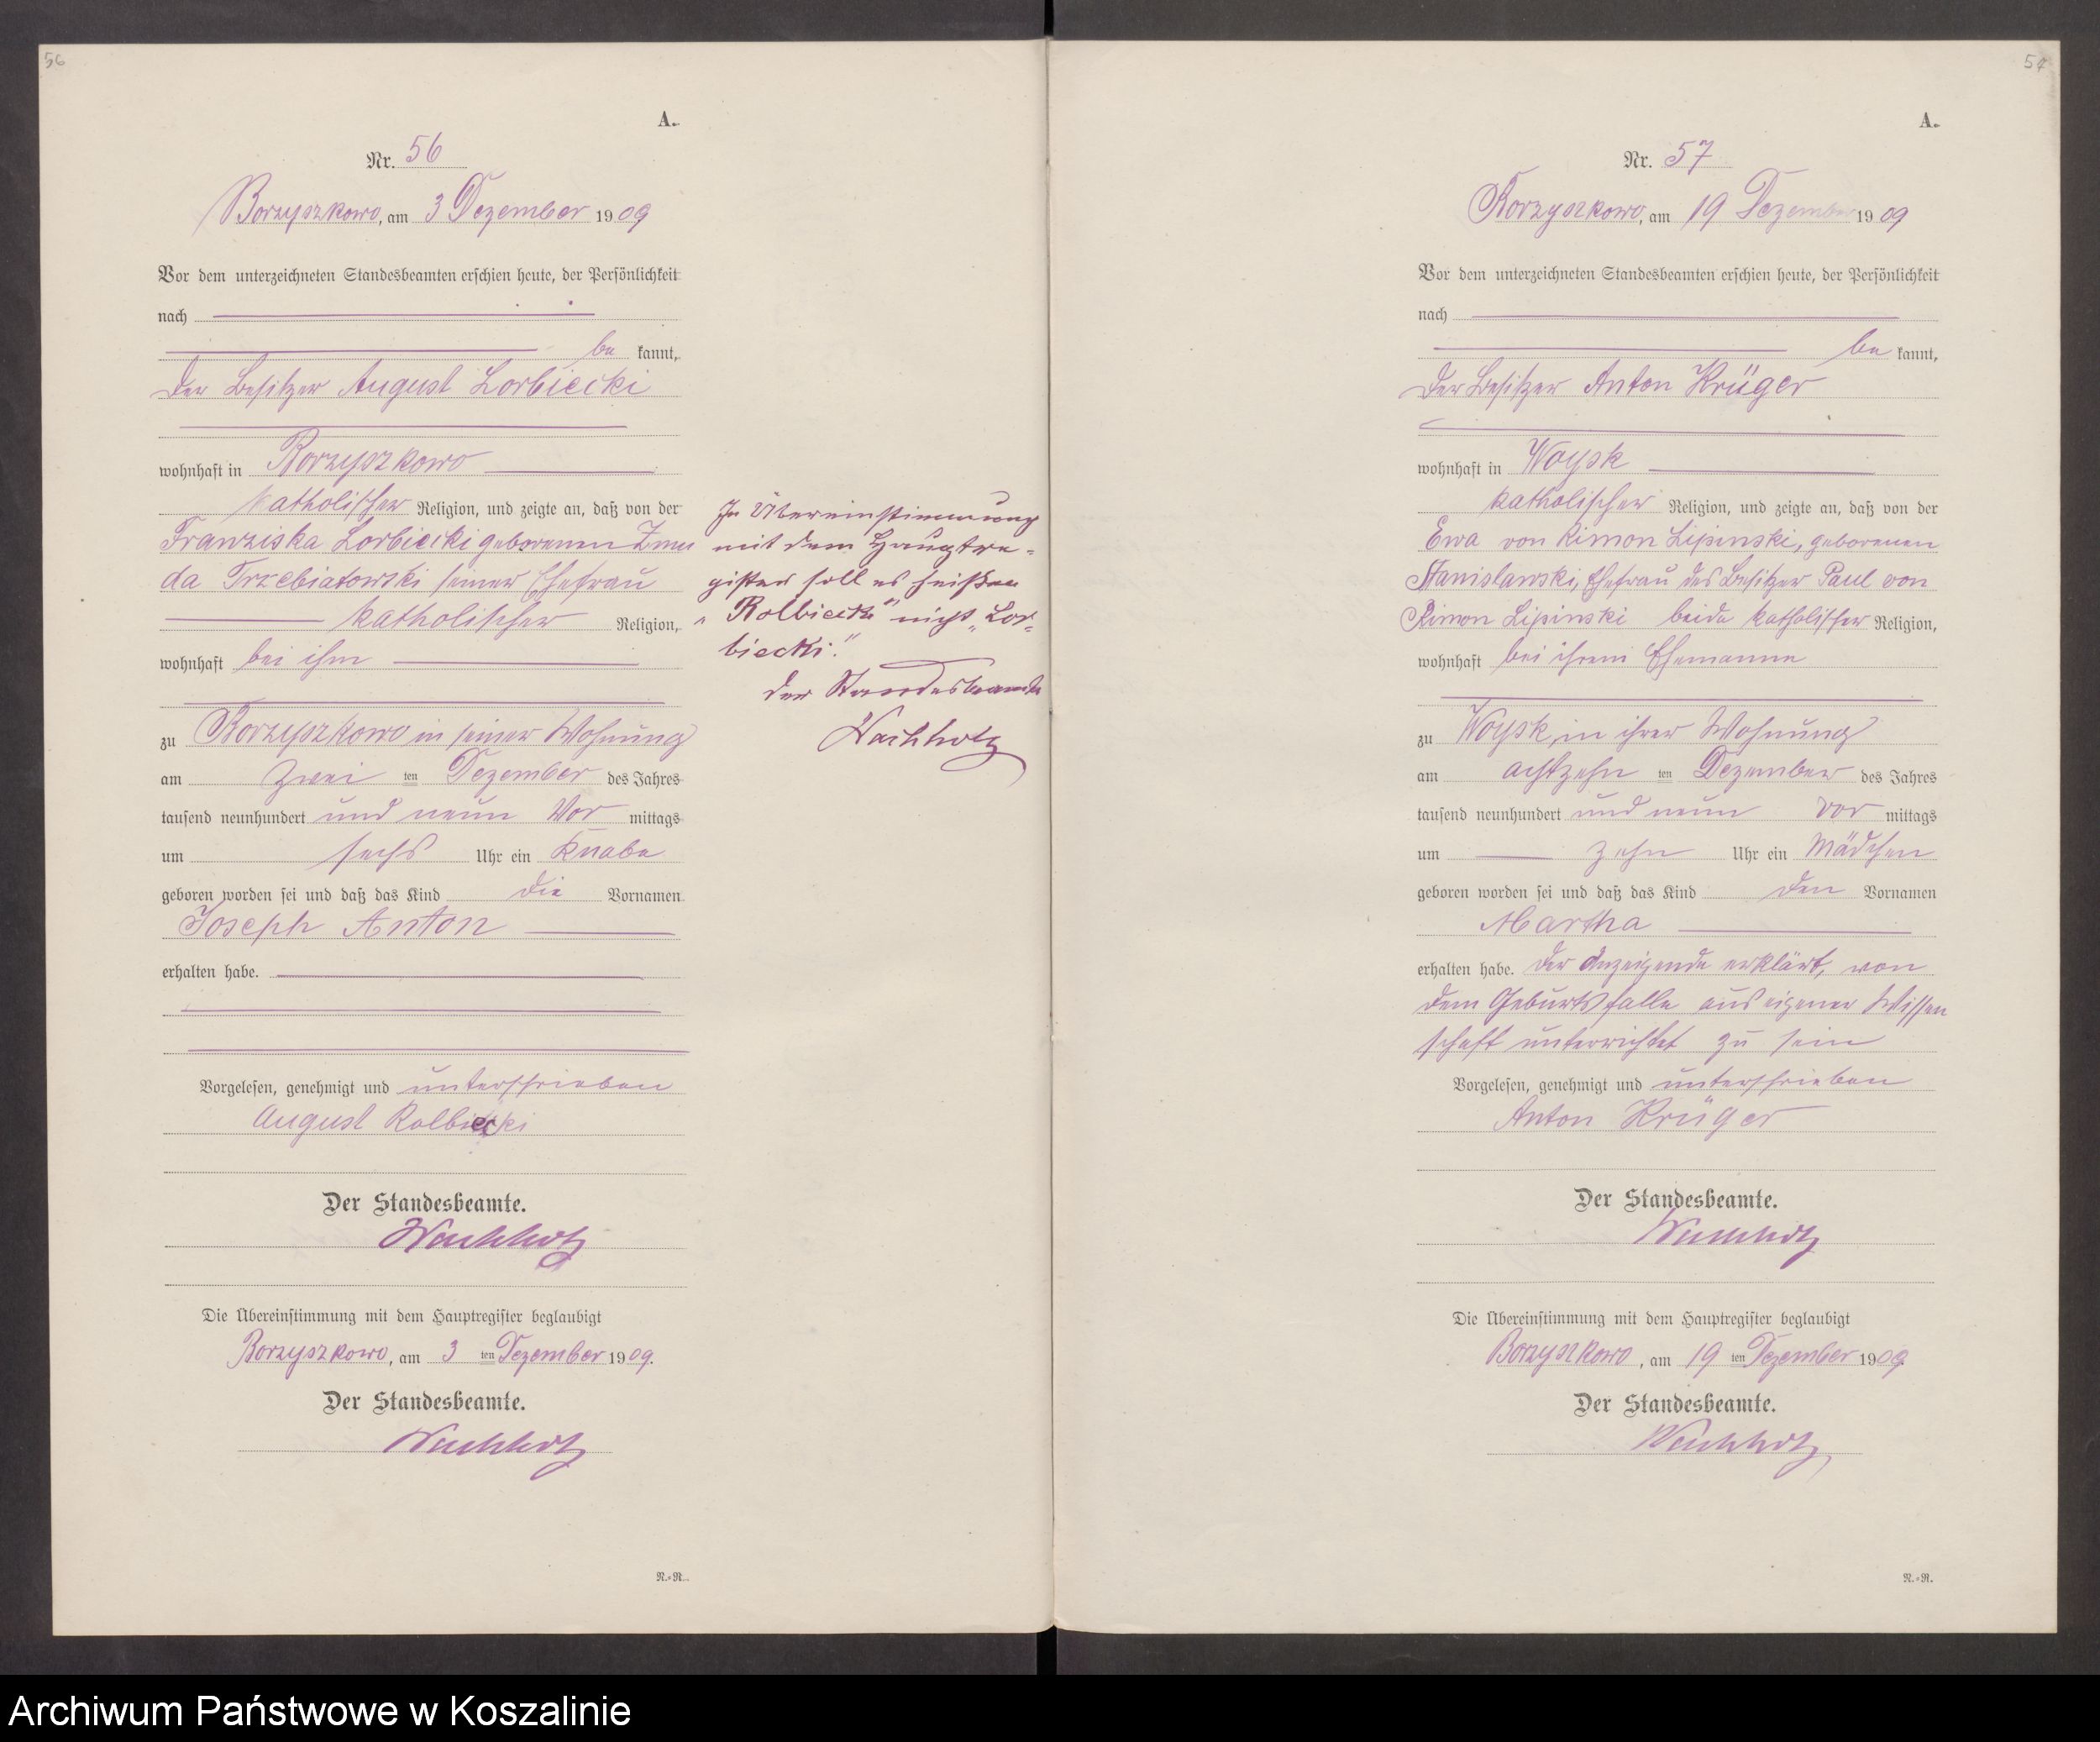 56
A.
Nr. 56
Borzyszkowo, am 3 Dezember 1909
Vor dem unterzeichneten Standesbeamten erschien heute, der Persönlichkeit
nach
be kannt,
der Besitzer August Lorbiecki
wohnhaft in Borzyszkowo
katholischer Religion, und zeigte an, daß von der
Franziska Lorbiecki geborenen Zmu
da Trzebiatowski seiner Ehefrau
katholischer Religion,
wohnhaft bei ihm
zu Borzyszkowo in seiner Wohnung
am zwei ten Dezember des Jahres
tausend neunhundert und neun Vor mittags
um sechs Uhr ein Knabe
geboren worden sei und daß das Kind die Vornamen
Joseph Anton
erhalten habe.
Vorgelesen, genehmigt und unterschrieben
August Rolbiecki
Der Standesbeamte.
Wachholz
Die Übereinstimmung mit dem Hauptregister beglaubigt
Borzyszkowo, am 3 ten Dezember 1909.
Der Standesbeamte.
Wachholz
R.=R.
In Übereinstimmung
mit dem Hauptre-
gister soll es heißen
"Rolbiecki" nicht "Lor-
biecki."
der Standesbeamte
Wachholz
57
A.
Nr. 57
Borzyszkowo, am 19 Dezember 1909
Vor dem unterzeichneten Standesbeamten erschien heute, der Persönlichkeit
nach
be kannt,
der Besitzer Anton Krüger
wohnhaft in Woysk
katholischer Religion, und zeigte an, daß von der
Ewa von Rimon Lipinski, geborenen
Stanislawski, Ehefrau des Besitzer Paul von
Rimon Lipinski beide katholischer Religion,
wohnhaft bei ihrem Ehemanne
zu Woysk, in ihrer Wohnung
am achtzehn ten Dezember des Jahres
tausend neunhundert und neun vor mittags
um zehn Uhr ein Mädchen
geboren worden sei und daß das Kind den Vornamen
Martha
erhalten habe. Der Anzeigende erklärt, von
dem Geburtsfalle aus eigener Wissen
schaft unterrichtet zu sein
Vorgelesen, genehmigt und unterschrieben
Anton Krüger
Der Standesbeamte.
Wachholz
Die Übereinstimmung mit dem Hauptregister beglaubigt
Borzyszkowo, am 19 ten Dezember 1909
Der Standesbeamte.
Wachholz
R.=R.
Archiwum Państwowe w Koszalinie